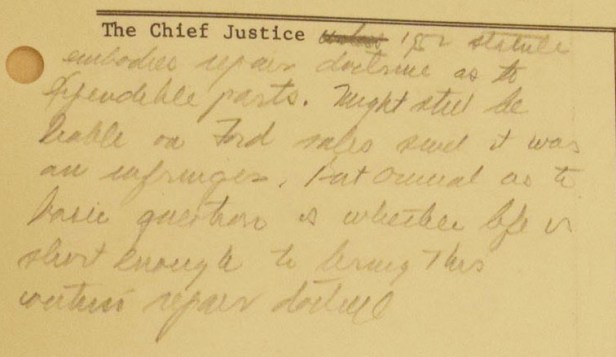 The Chief Justice 1952 statute
embodies repair doctrine as to
expendible parts. Might still be
liable on Ford sales since it was
an infringer. But as to
basic question is whether life is
short enough to bring this
within repair doctrine